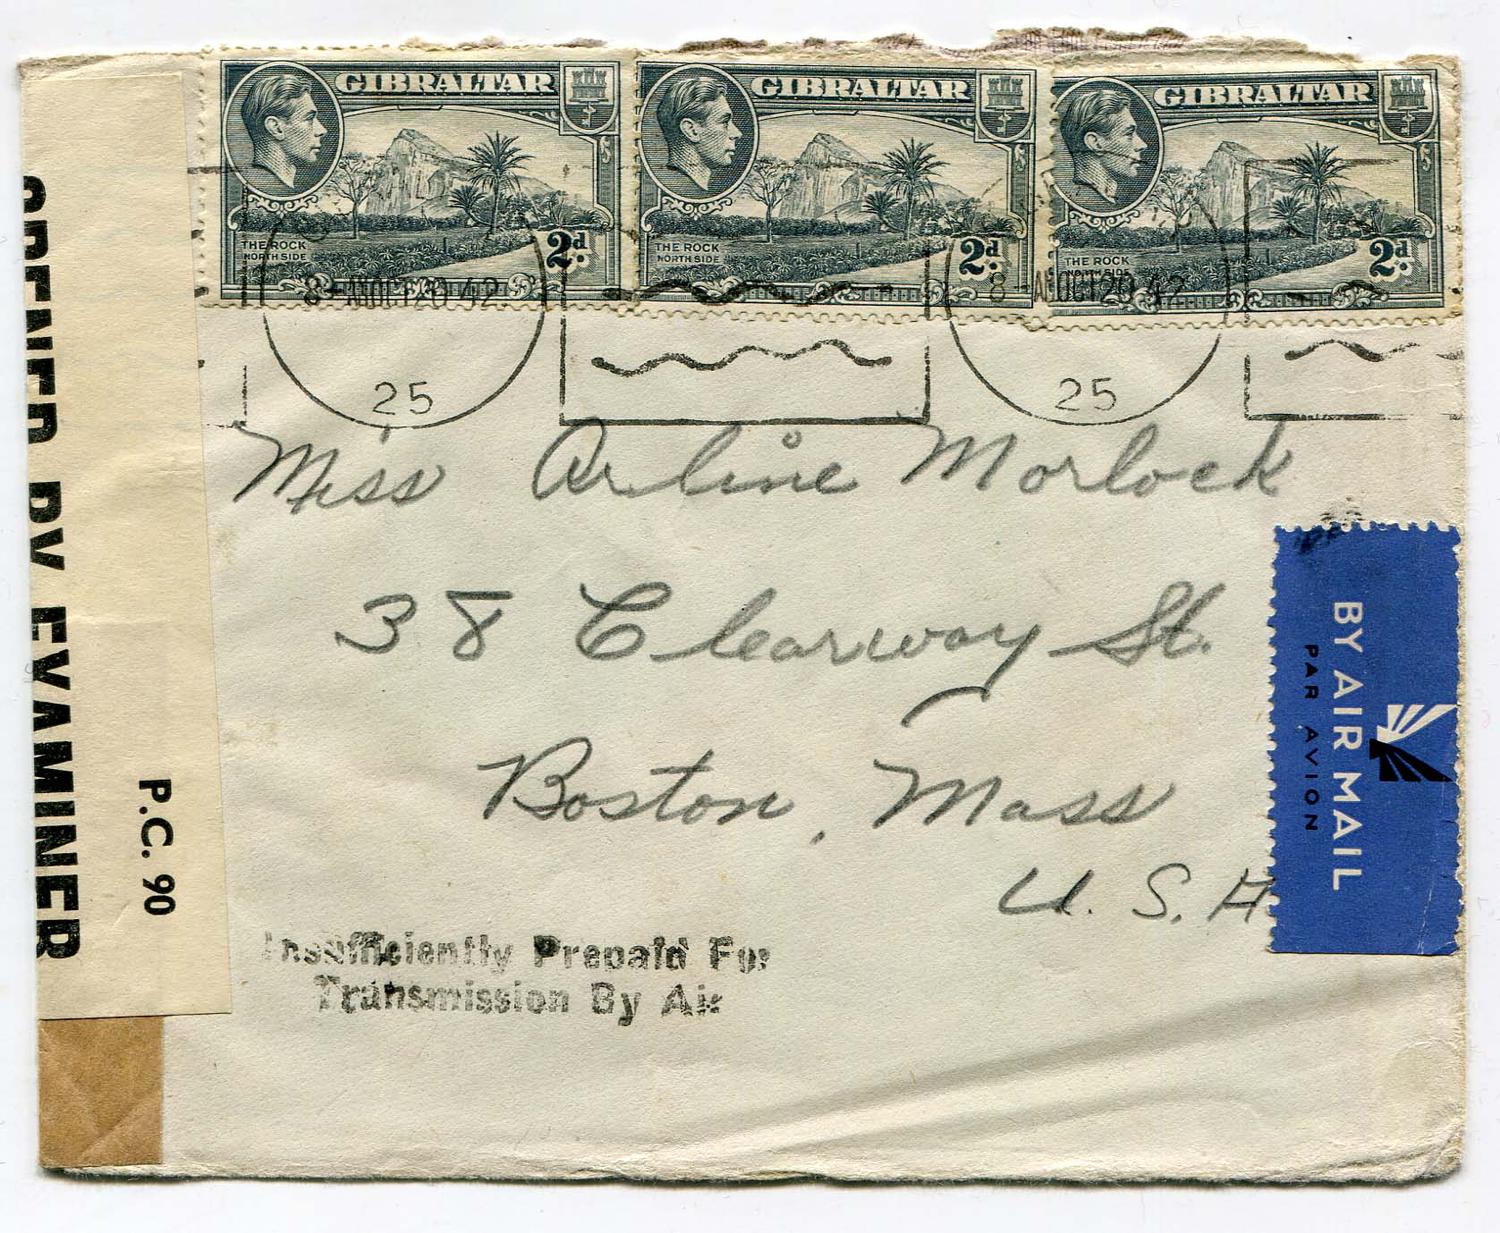 GIBRALTAR
THE ROCK
NORTH SIDE
2d.
GIBRALTAR
THE ROCK
NORTH SIDE
2d.
GIBRALTAR
THE ROCK
NORTH SIDE
2d.
8 - AM OCT 20 42
25
8 - AM OCT 20 42
25
OPENED BY EXAMINER
P.C. 90
Miss Arline Morlock
38 Clearway St.
Boston, Mass
U. S. A
BY AIR MAIL
PAR AVION
Insufficiently Prepaid For
Transmission By Air